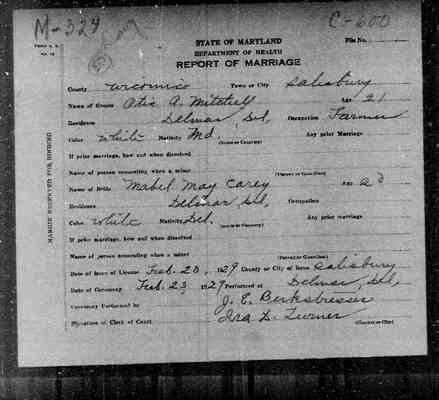 M-324
C-600
STATE OF MARYLAND
DEPARTMENT OF HEALTH
REPORT OF MARRIAGE
File No.
County Wicomico Town or City Salisbury
Name of Groom Otis A. Mitchell Age 21
Residence Delmar, Del. Occupation Farmer
Color White Nativity Md. Any prior Marriage
(State or Country)
If prior marriage, how and when dissolved
Name of person consenting when a minor
(Parent or Guardian)
Name of Bride Mabel May Carey Age
Residence Delmar, Del, Occupation
Color White Nativity Del. Any prior marriage
(State or Country)
If prior marriage, how and when dissolved
Name of person consenting when a minor
(Parent or Guardian)
Date of Issue of License Feb. 20, 1929 County or City of Issue Salisbury
Date of Ceremony Feb. 23, 1929 Performed at Delmar, Del,
Ceremony Performed by J. E. Berksbresser
Signature of Clerk of Court Ira D. Turner
(County or City)
MARGIN RESERVED FOR BINDING